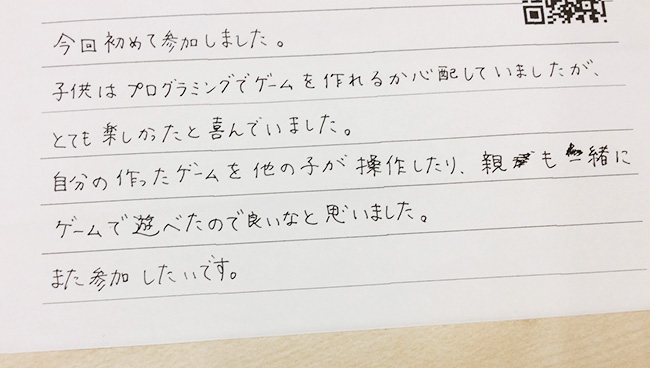 今回初めて参加しました。
子供はプログラミングでゲームを作れるか心配していましたが、
とても楽しかったと喜んでいました。
自分の作ったゲームを他の子が操作したり、親も一緒に
ゲームで遊べたので良いなと思いました。
また参加したいです。